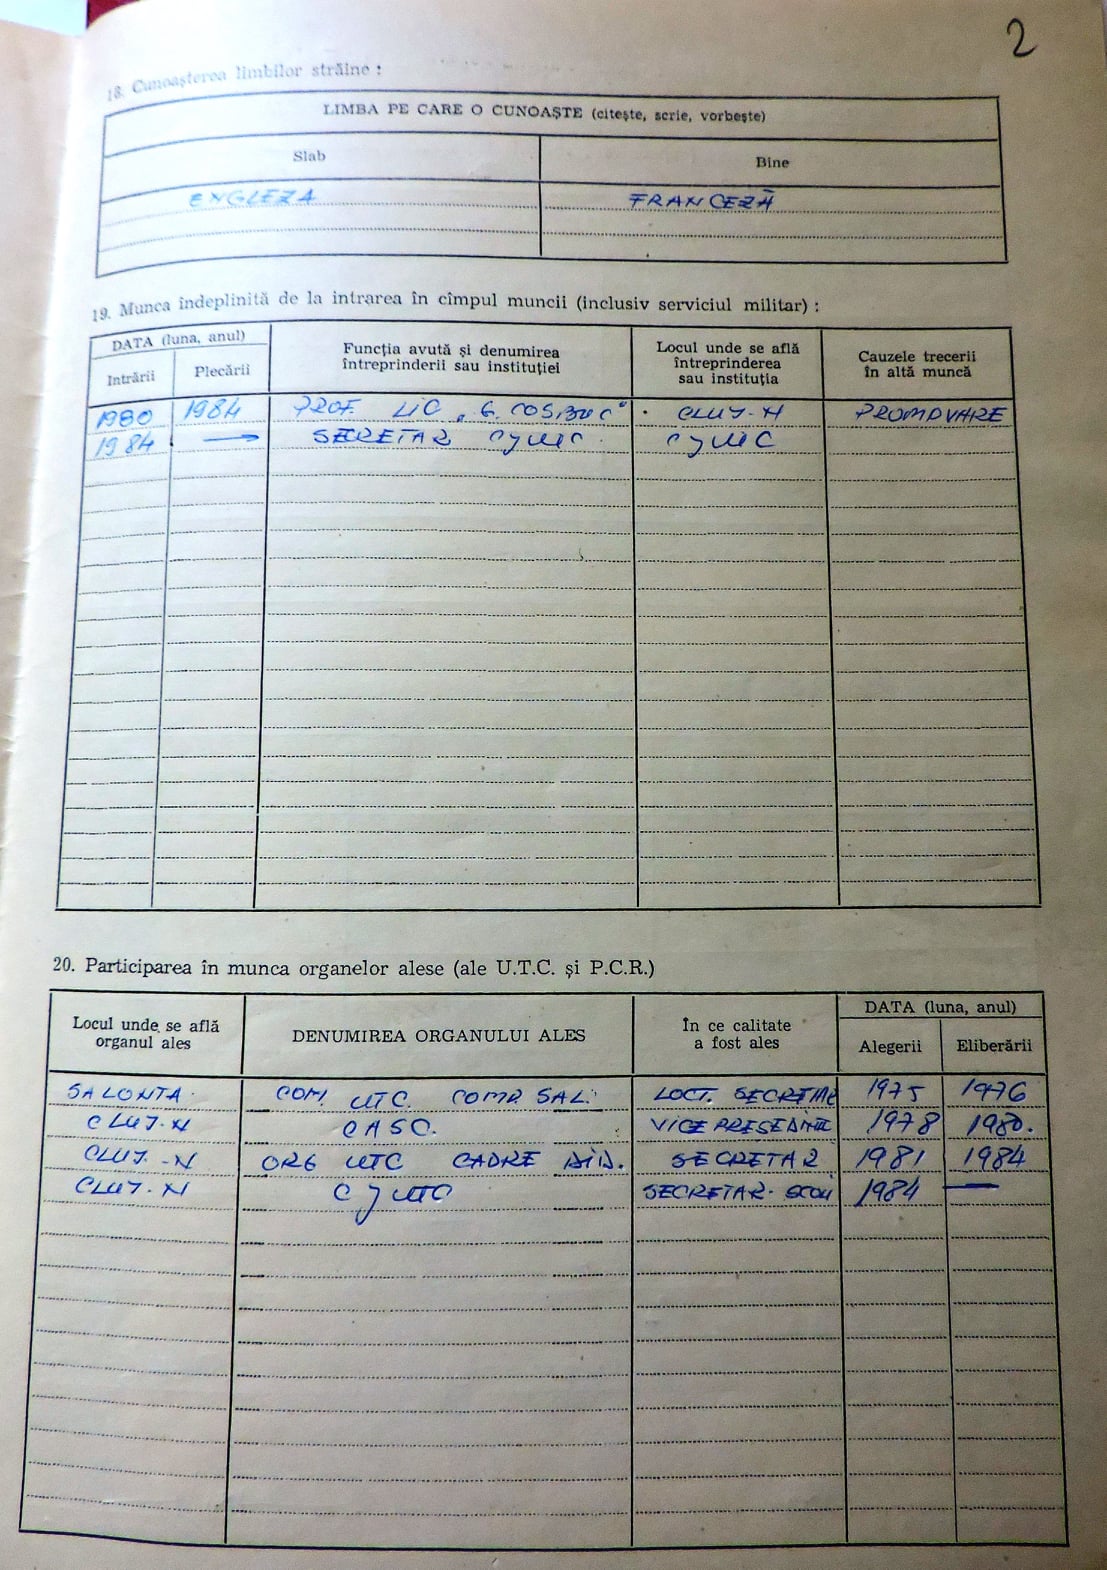 2
18. Cunoașterea limbilor străine :
LIMBA PE CARE O CUNOAȘTE (citește, scrie, vorbește)
Slab Bine
ENGLEZA FRANCEZĂ
19. Munca îndeplinită de la intrarea în cîmpul muncii (inclusiv serviciul militar) :
DATA (luna, anul)
Intrării Plecării
Funcția avută și denumirea
întreprinderii sau instituției
Locul unde se află
întreprinderea
sau instituția
Cauzele trecerii
în altă muncă
1980 1984 PROF. LIC „G. COȘBUC" CLUJ-N PROMOVARE
1984 SECRETAR CJUTC CJUTC
20. Participarea în munca organelor alese (ale U.T.C. și P.C.R.)
Locul unde se află
organul ales
DENUMIREA ORGANULUI ALES
În ce calitate
a fost ales
DATA (luna, anul)
Alegerii Eliberării
SALONTA COM. UTC COMP. SAL. LOCT. SECRETAR 1975 1976
CLUJ-N CASC. VICEPRESEDINTE 1978 1980.
CLUJ-N ORG UTC CADRE DID. SECRETAR 1981 1984
CLUJ-N CJUTC SECRETAR 1984